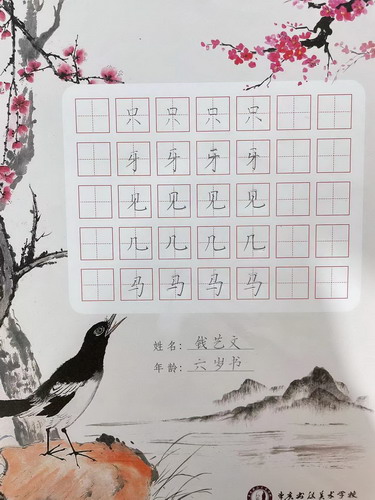 只 只 只 只
牙 牙 牙 牙
见 见 见 见
几 几 几 几
马 马 马 马
姓名：钱艺文
年龄：六岁书